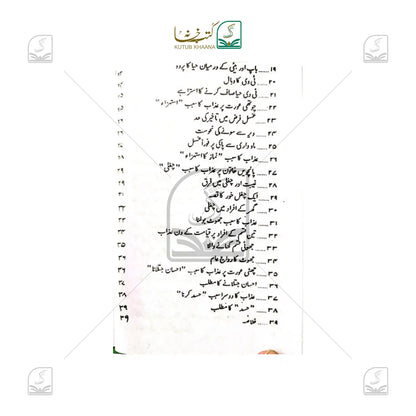 کتب خانہ
KUTUB KHAANA
۱۹ ..... باپ اور بیٹی کے درمیان حیا کا پردہ
۲۰ ..... ٹی وی کا وبال
۲۱ ..... ٹی وی حیا صاف کرنے کا استرا ہے
۲۲ ..... چوتھی عورت پر عذاب کا سبب "استہزاء"
۲۳ ..... غسل فرض میں تاخیر کی حد
۲۴ ..... دیر سے سونے کی نحوست
۲۵ ..... ماہواری سے پاکی پر فوراً غسل
۲۶ ..... عذاب کا سبب "نماز کا استہزاء"
۲۷ ..... پانچویں خاتون پر عذاب کا سبب "چغلی"
۲۸ ..... غیبت اور چغلی میں فرق
۲۹ ..... ایک چغل خور کا قصہ
۳۰ ..... گھر کے افراد میں چغلی
۳۱ ..... عذاب کا سبب جھوٹ بولنا
۳۲ ..... تین قسم کے افراد پر قیامت کے دن عذاب
۳۳ ..... جھوٹی قسم کھانے والا ۳۵
۳۴ ..... جھوٹ کا رواج عام
۳۵ ..... چھٹی عورت پر عذاب کا سبب "احسان جتلانا" ۳۶
۳۶ ..... احسان جتلانے کا مطلب
۳۷ ..... عذاب کا دوسرا سبب "حسد کرنا" ۳۸
۳۸ ..... "حسد" کا مطلب
۳۹ ..... خلاصہ ۳۹